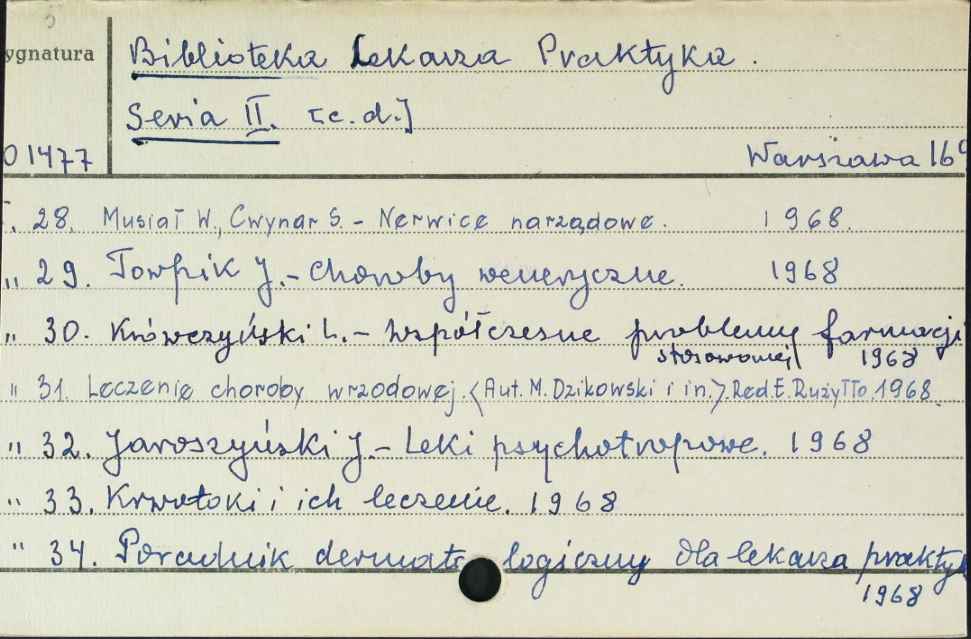 ygnatura
Biblioteka Lekarza Praktyka.
Seria II. [c.d.]
01477
Warszawa 16°
T. 28. Musiał W., Cwynar S. - Nerwice narządowe. 1968.
„ 29. Towpik J. - Choroby weneryczne. 1968
„ 30. Krówczyński L. - Współczesne problemy farmacji
stosowanej 1968
„ 31. Leczenie choroby wrzodowej. <Aut. M. Dzikowski i in.>. Red. E. Rużyłło. 1968.
„ 32. Jaroszyński J. - Leki psychotropowe. 1968
„ 33. Krwotoki i ich leczenie. 1968
„ 34. Poradnik dermatologiczny dla lekarza prakty
1968